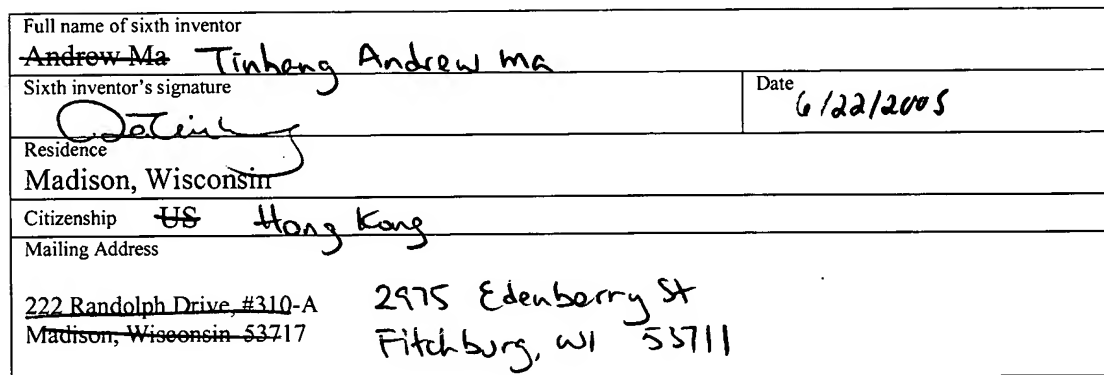 Full name of sixth inventor
Andrew Ma Tinheng Andrew Ma
Sixth inventor's signature
Date 6/22/2005
Residence
Madison, Wisconsin
Citizenship US Hong Kong
Mailing Address
222 Randolph Drive, #310-A 2975 Edenberry St
Madison, Wisconsin 53717 Fitchburg, WI 53711